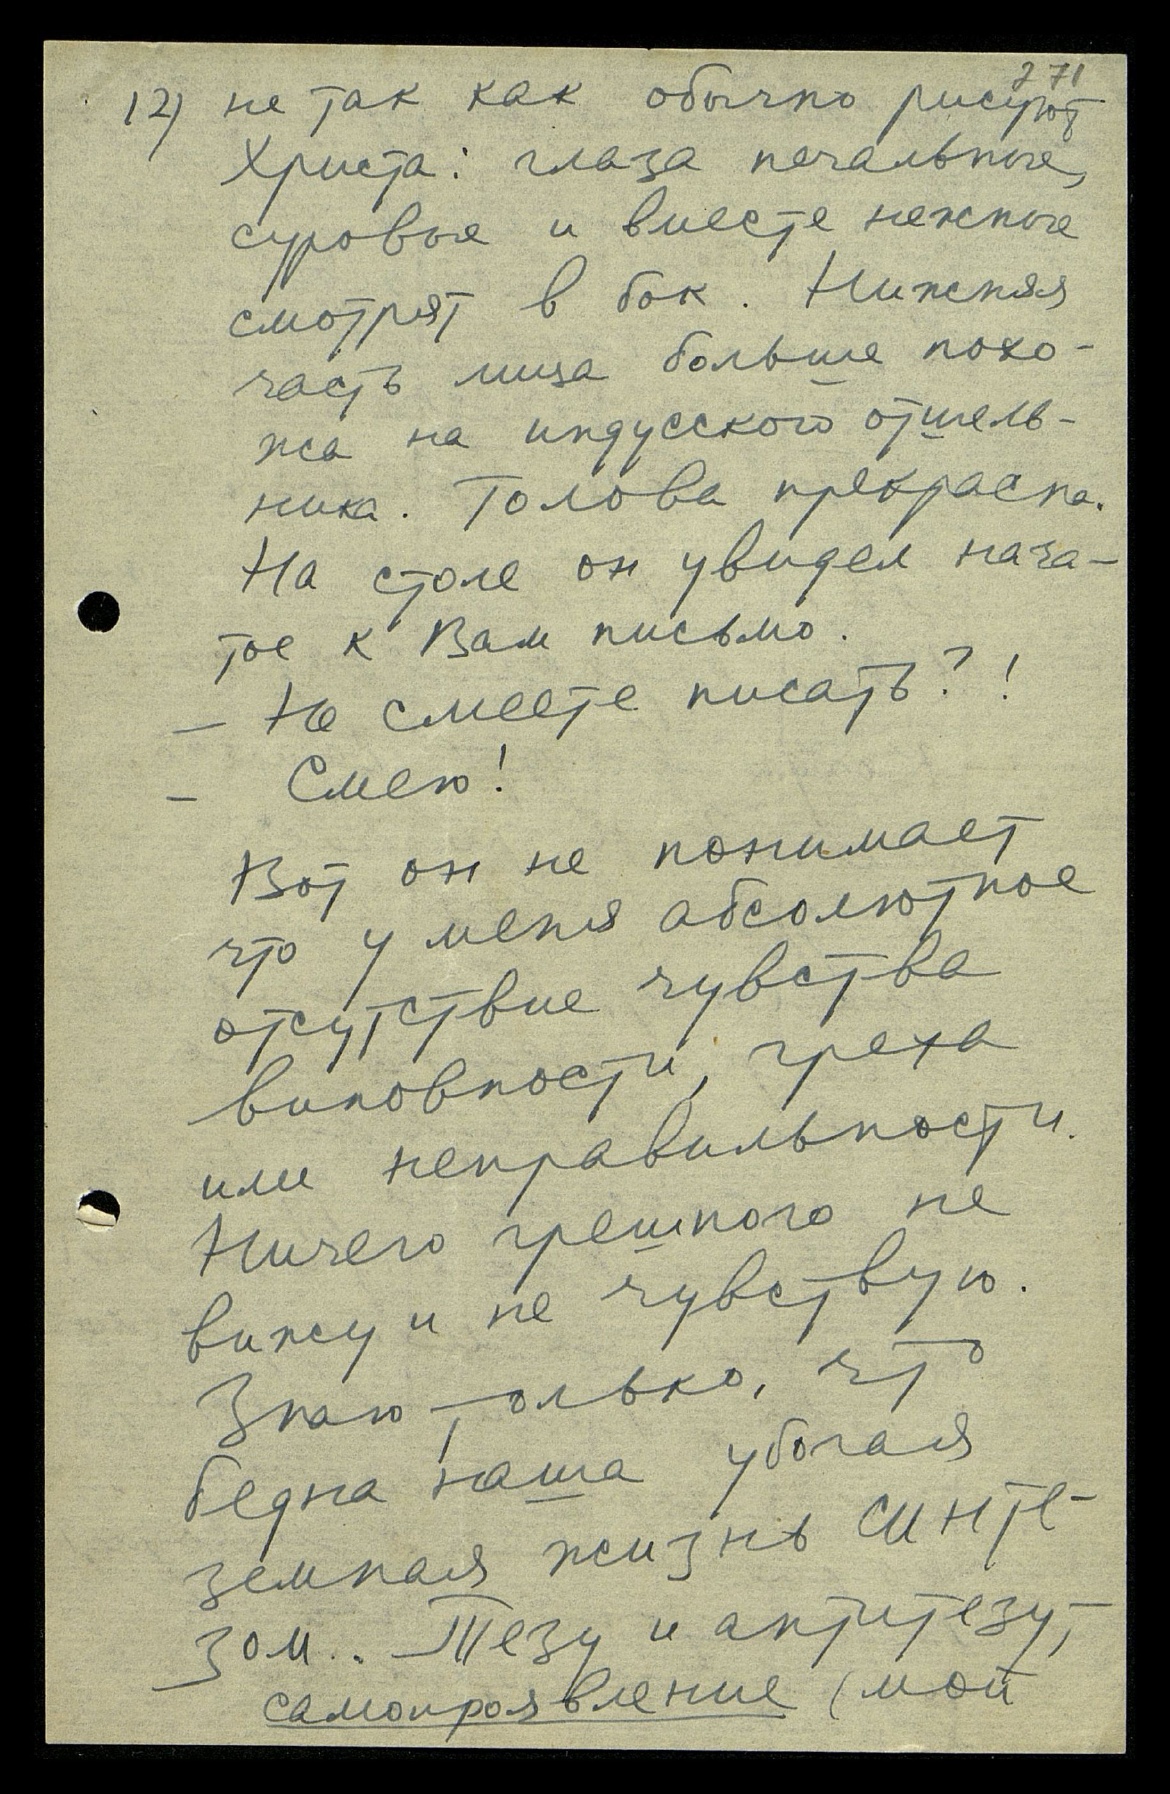 271
12) не так как обычно рисуют
Христа: глаза печальные,
суровые и вместе нежные
смотрят в бок. Нижняя
часть лица больше похо-
жа на индусского отшель-
ника. Голова прекрасна.
На столе он увидел нача-
тое к Вам письмо.
— Не смеете писать?!
— Смею!
Вот он не понимает
что у меня абсолютное
отсутствие чувства
виновности, греха
или неправильности.
Ничего грешного не
вижу и не чувствую.
Знаю только, что
бедна наша убогая
земная жизнь синте-
зом.. Тезу и антитезу,
самопроявление (мой